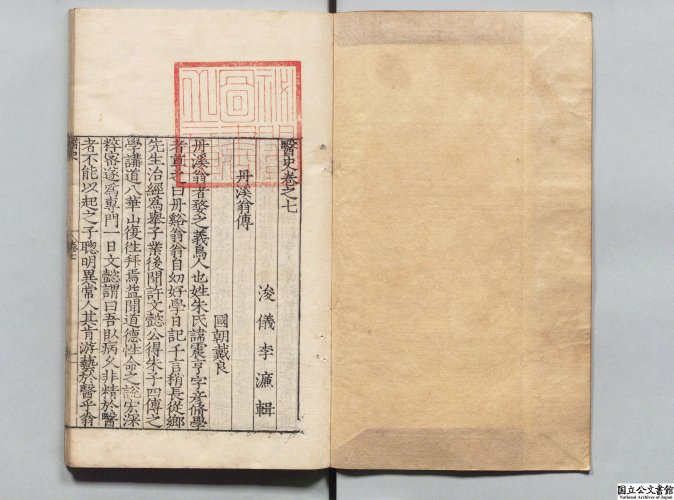 醫史卷之七
浚儀李濂輯
丹溪翁傳
國朝戴良
丹溪翁者婺之義烏人也姓朱氏諱震亨字彦脩學
者尊之曰丹谿翁翁自幼好學日記千言稍長從鄉
先生治經為舉子業後聞許文懿公得朱子四傳之
學講道八華山復徃拜焉益聞道德性命之說宏深
粹密遂為專門一日文懿謂曰吾臥病久非精於醫
者不能以起之子聰明異常人其肯游藝於醫乎翁
国立公文書館
National Archives of Japan